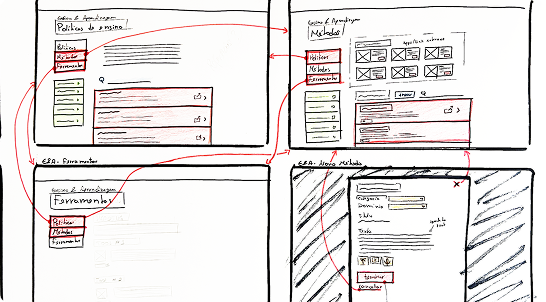 Ensino & Aprendizagem
Políticas de ensino
Políticas
Métodos
Ferramentas
Ensino & Aprendizagem
Métodos
Políticas
Métodos
Ferramentas
E&A - Ferramentas
Ensino & Aprendizagem
Ferramentas
Políticas
Métodos
Ferramentas
E&A - Novo Método
Categoria
Domínio
Título
Texto
Submeter
Cancelar